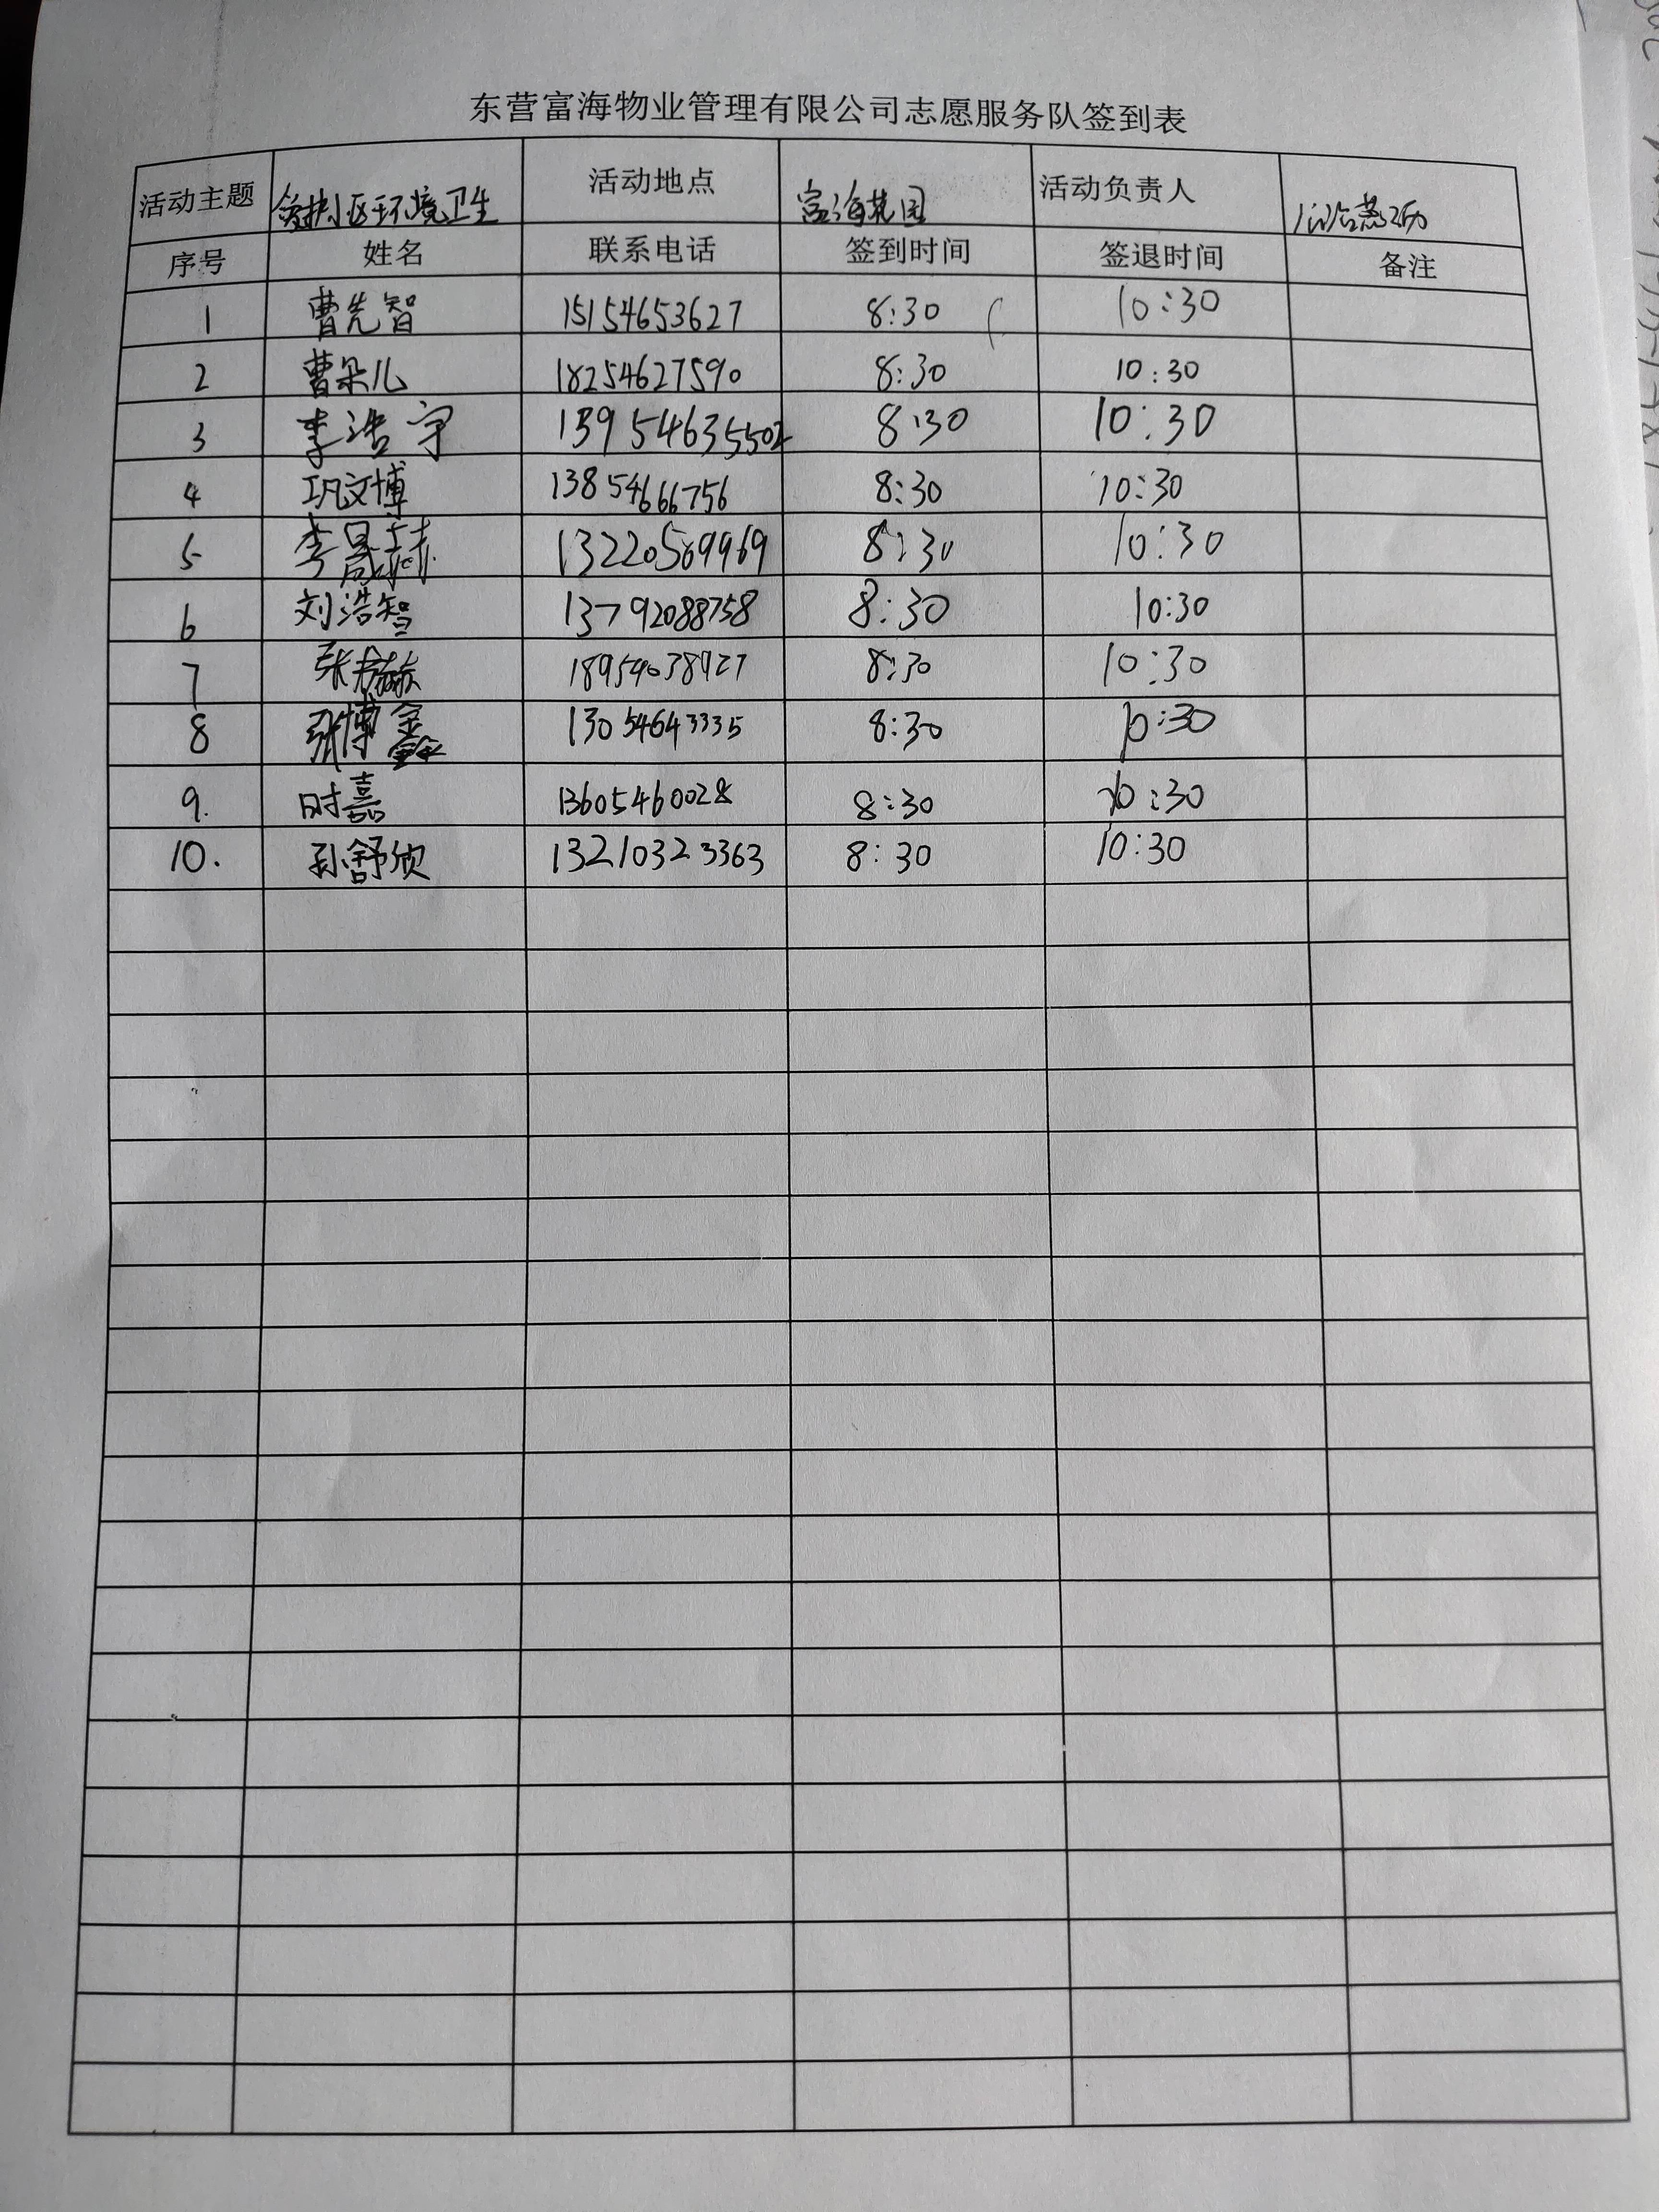 东营富海物业管理有限公司志愿服务队签到表
活动主题 爱护小区环境卫生 活动地点 富海花园 活动负责人
序号 姓名 联系电话 签到时间 签退时间 备注
1 曹先智 15154653627 8:30 10:30
2 曹朵儿 18254627590 8:30 10:30
3 李浩宇 13954635502 8:30 10:30
4 巩文博 13854666756 8:30 10:30
5 李晟赫 13220569969 8:30 10:30
6 刘浩智 13792088758 8:30 10:30
7 张 18954038927 8:30 10:30
8 张博鑫 13054643335 8:30 10:30
9. 时嘉 13605460028 8:30 10:30
10. 孙舒欣 13210323363 8:30 10:30